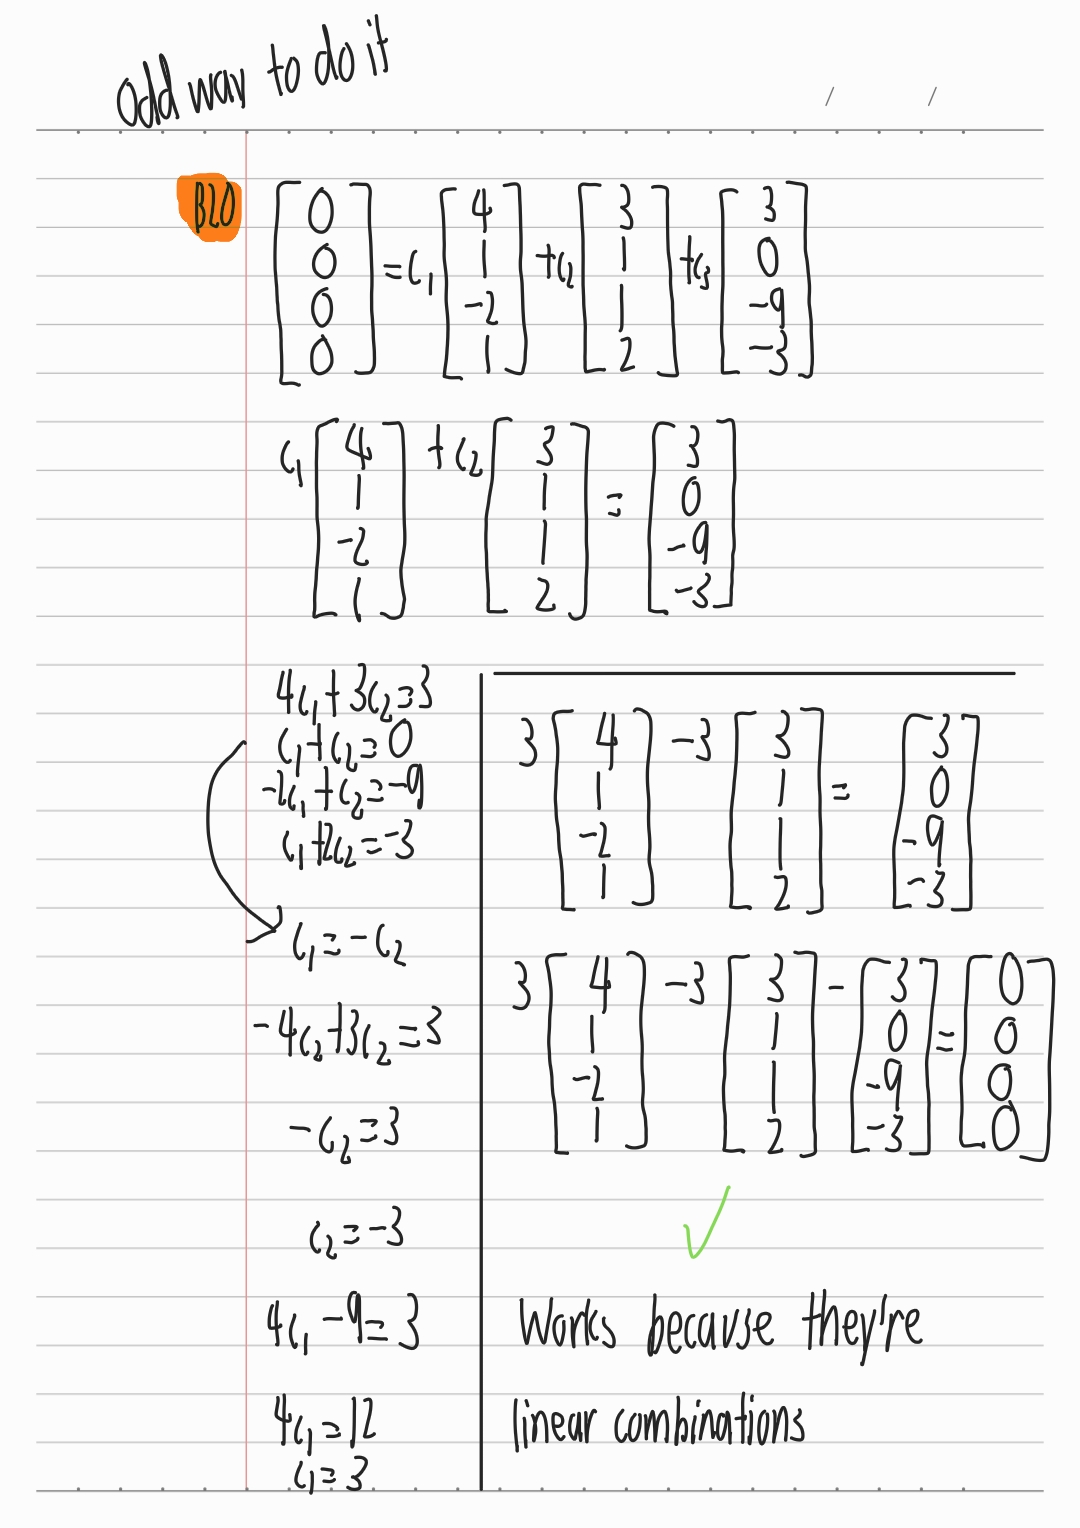 odd way to do it
B20
[0 0 0 0] = c₁ [4 1 -2 1] + c₂ [3 1 1 2] + c₃ [3 0 -9 -3]
c₁ [4 1 -2 1] + c₂ [3 1 1 2] = [3 0 -9 -3]
4c₁ + 3c₂ = 3
c₁ + c₂ = 0
-2c₁ + c₂ = -9
c₁ + 2c₂ = -3
c₁ = -c₂
-4c₂ + 3c₂ = 3
-c₂ = 3
c₂ = -3
4c₁ - 9 = 3
4c₁ = 12
c₁ = 3
3 [4 1 -2 1] - 3 [3 1 1 2] = [3 0 -9 -3]
3 [4 1 -2 1] - 3 [3 1 1 2] - [3 0 -9 -3] = [0 0 0 0]
✓
Works because they're
linear combinations